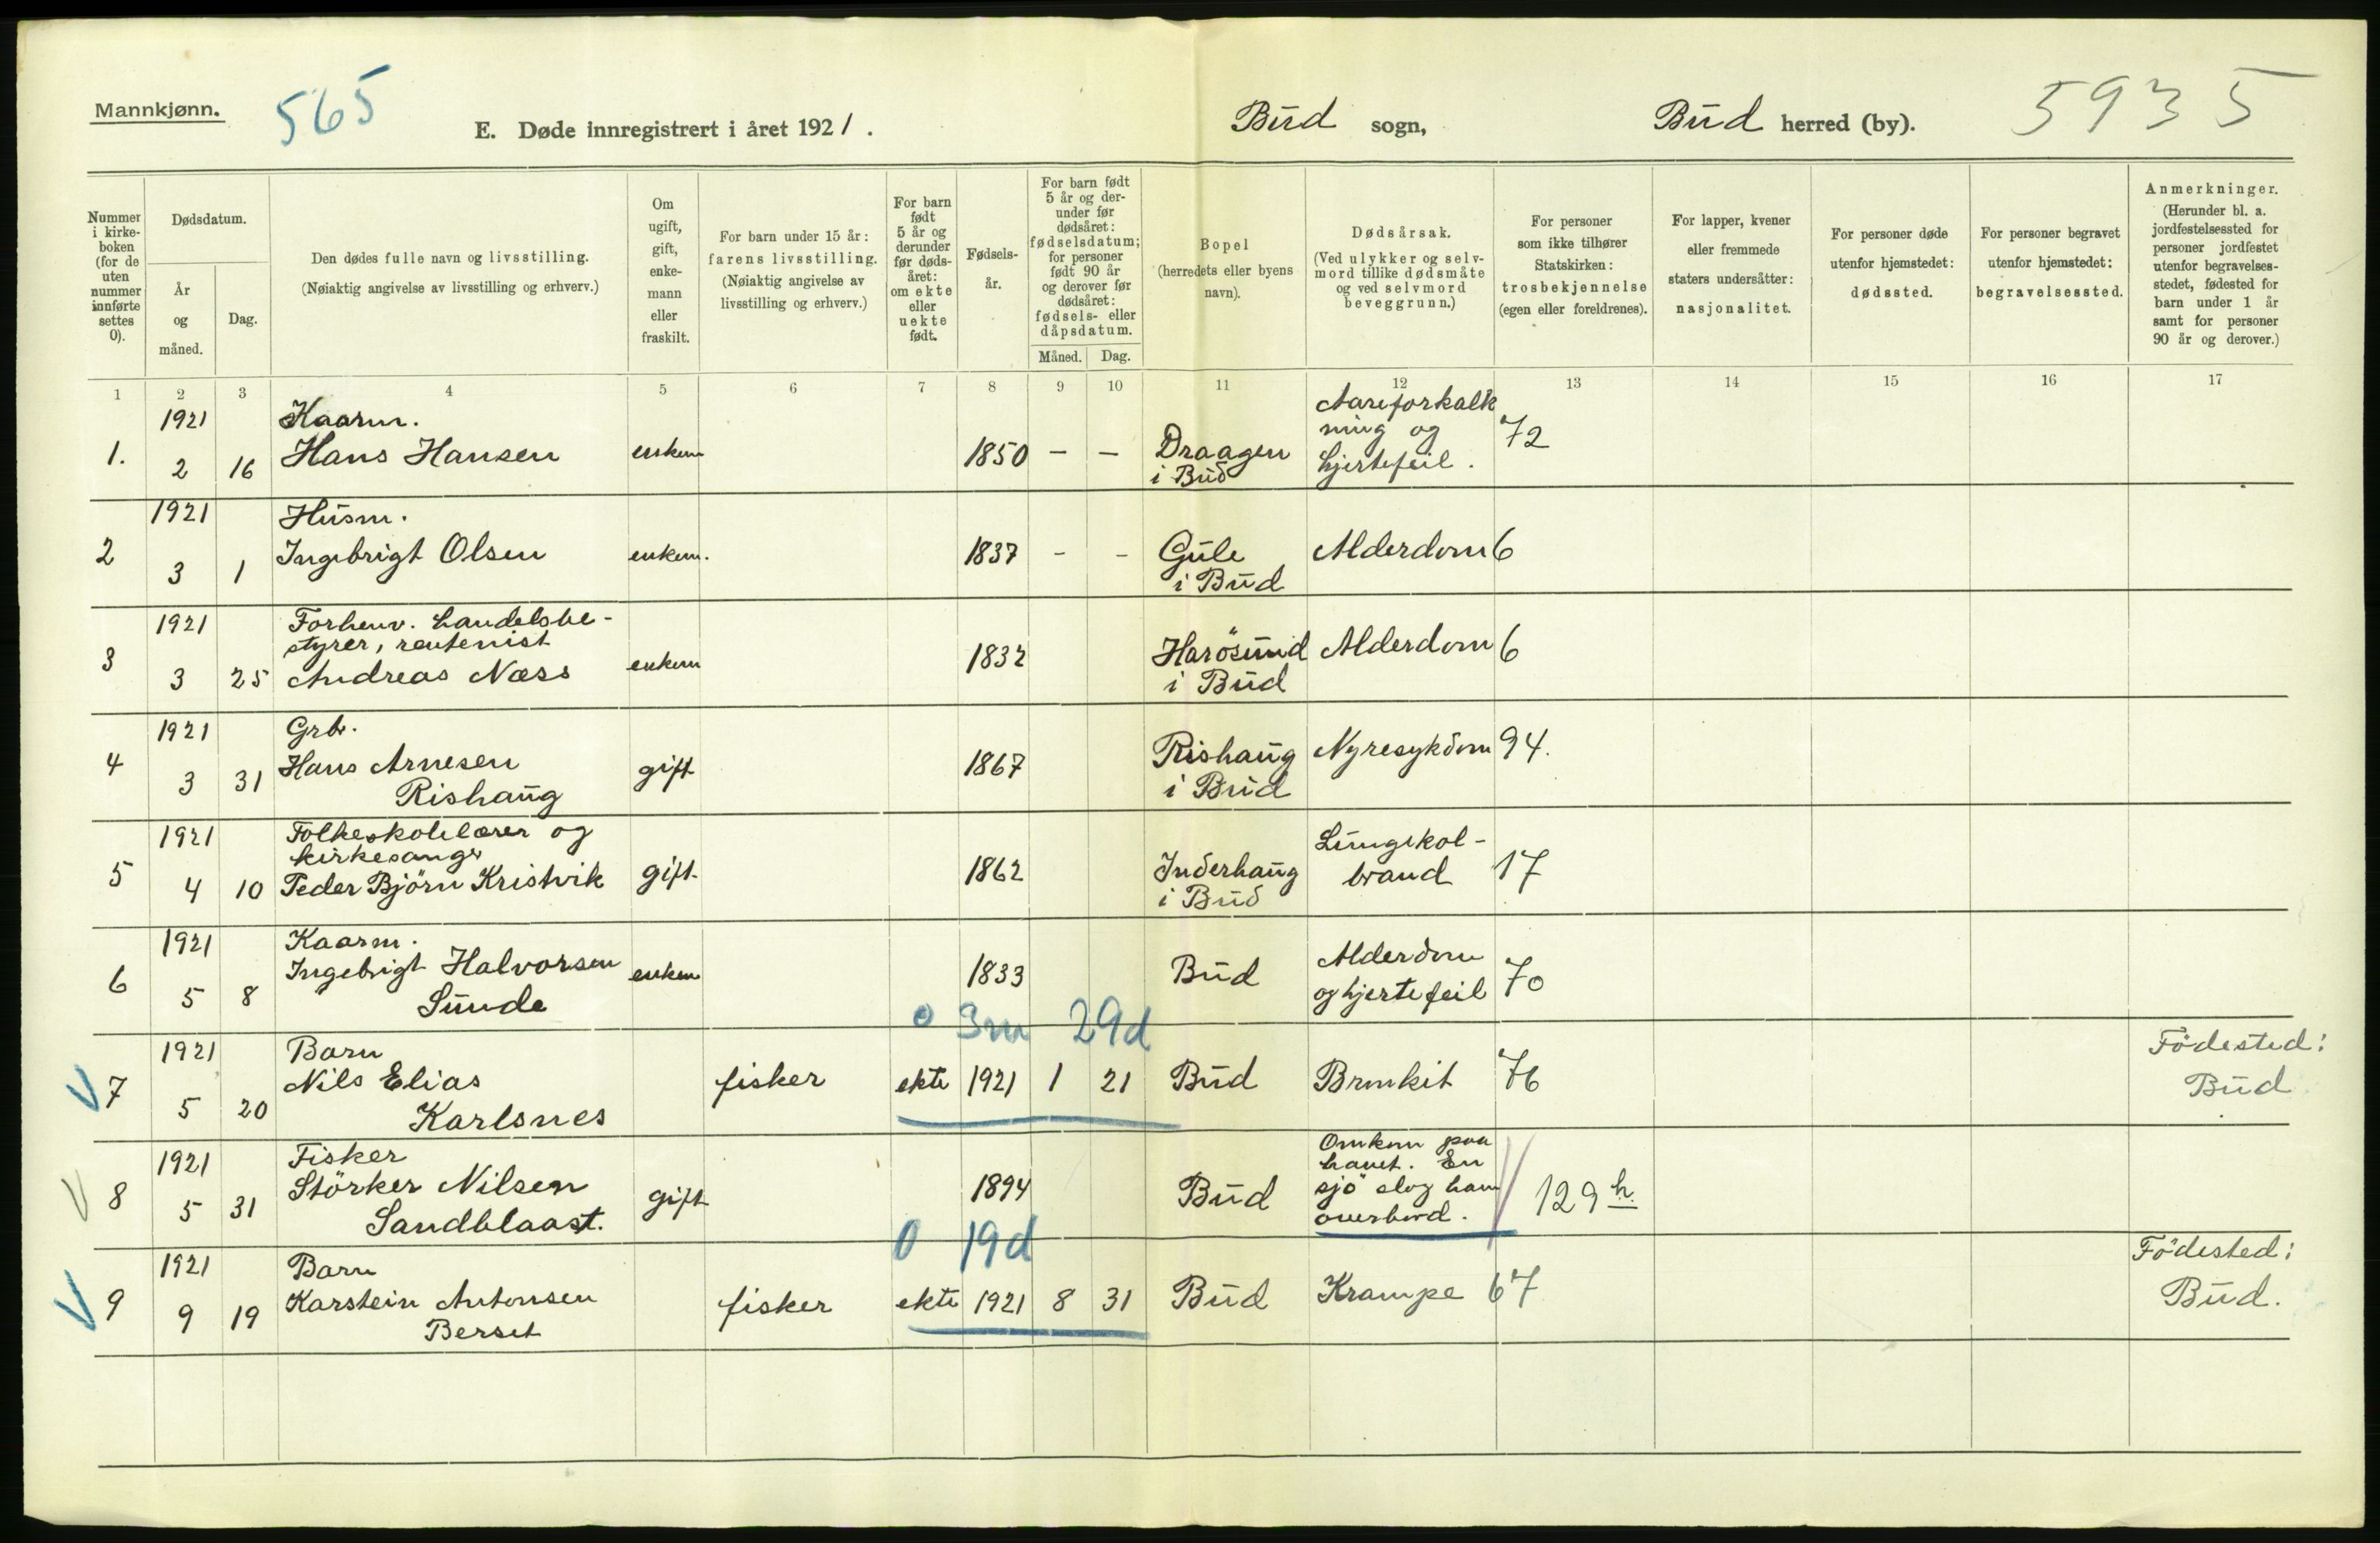 Mannkjønn.
565
E. Døde innregistrert i året 1921.
Bud sogn,
Bud herred (by).
5935
Nummer i kirke-boken (for de uten nummer innførte settes 0).
Dødsdatum.
År og måned.
Dag.
Den dødes fulle navn og livsstilling.
(Nøiaktig angivelse av livsstilling og erhverv.)
Om ugift, gift, enke-mann eller fraskilt.
For barn under 15 år: farens livsstilling.
(Nøiaktig angivelse av livsstilling og erhverv.)
For barn født 5 år og derunder før døds-året: om ekte eller uekte født.
Fødsels-år.
For barn født 5 år og der-under før dødsåret: fødselsdatum; for personer født 90 år og derover før dødsåret: fødsels- eller dåpsdatum.
Måned. Dag.
Bopel
(herredets eller byens navn).
Dødsårsak.
(Ved ulykker og selv-mord tillike dødsmåte og ved selvmord beveggrunn.)
For personer som ikke tilhører Statskirken: trosbekjennelse (egen eller foreldrenes).
For lapper, kvener eller fremmede staters undersåtter: nasjonalitet.
For personer døde utenfor hjemstedet: dødssted.
For personer begravet utenfor hjemstedet: begravelsessted.
Anmerkninger.
(Herunder bl. a. jordfestelsessted for personer jordfestet utenfor begravelses-stedet, fødested for barn under 1 år samt for personer 90 år og derover.)
1 2 3 4 5 6 7 8 9 10 11 12 13 14 15 16 17
1. 1921 2 16 Kaarm. Hans Hansen enkem 1850 - - Draagen i Bud Aareforkalkning og hjertefeil. 72
2 1921 3 1 Husm. Ingebrigt Olsen enkem. 1837 - - Gule i Bud Alderdom 6
3 1921 3 25 Forhenv. handelsbe-styrer, rentenist Andreas Næss enkem 1832 Harösund i Bud Alderdom 6
4 1921 3 31 Grbr. Hans Arnesen Rishaug gift 1867 Rishaug i Bud Nyresykdom 94.
5 1921 4 10 Folkeskolelærer og kirkesanger Peder Björn Kristvik gift 1862 Inderhaug i Bud Lungekol-brand 17
6 1921 5 8 Kaarm. Ingebrigt Halvorsen Sunde enkem 1833 Bud Alderdom og hjertefeil 70
0 3m 29d
V 7 1921 5 20 Barn Nils Elias Karlsnes fisker ekte 1921 1 21 Bud Bronkit 76 Födested: Bud
V 8 1921 5 31 Fisker Störker Nilsen Sandblaast. gift 1894 Bud Omkom paa havet. En sjö slog ham overbord. 129 h.
0 19d
V 9 1921 9 19 Barn Karstein Antonsen Berset fisker ekte 1921 8 31 Bud Krampe 67 Födested: Bud.